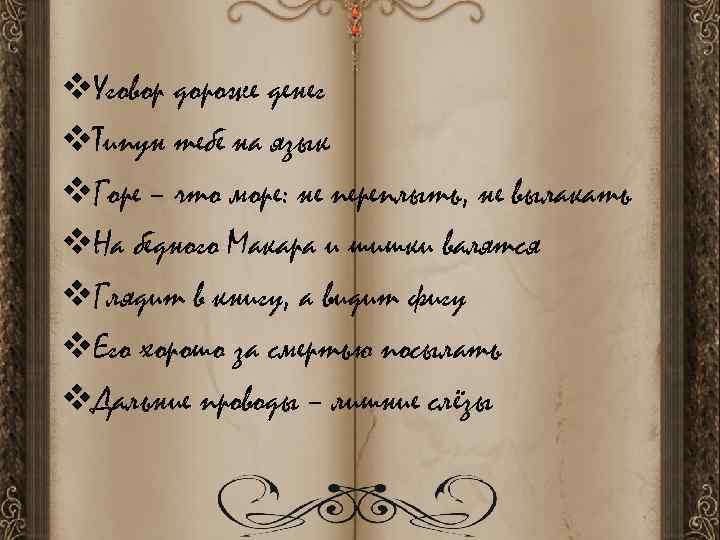 ❖Уговор дороже денег
❖Типун тебе на язык
❖Горе – что море: не переплыть, не вылакать
❖На бедного Макара и шишки валятся
❖Глядит в книгу, а видит фигу
❖Его хорошо за смертью посылать
❖Дальние проводы – лишние слёзы